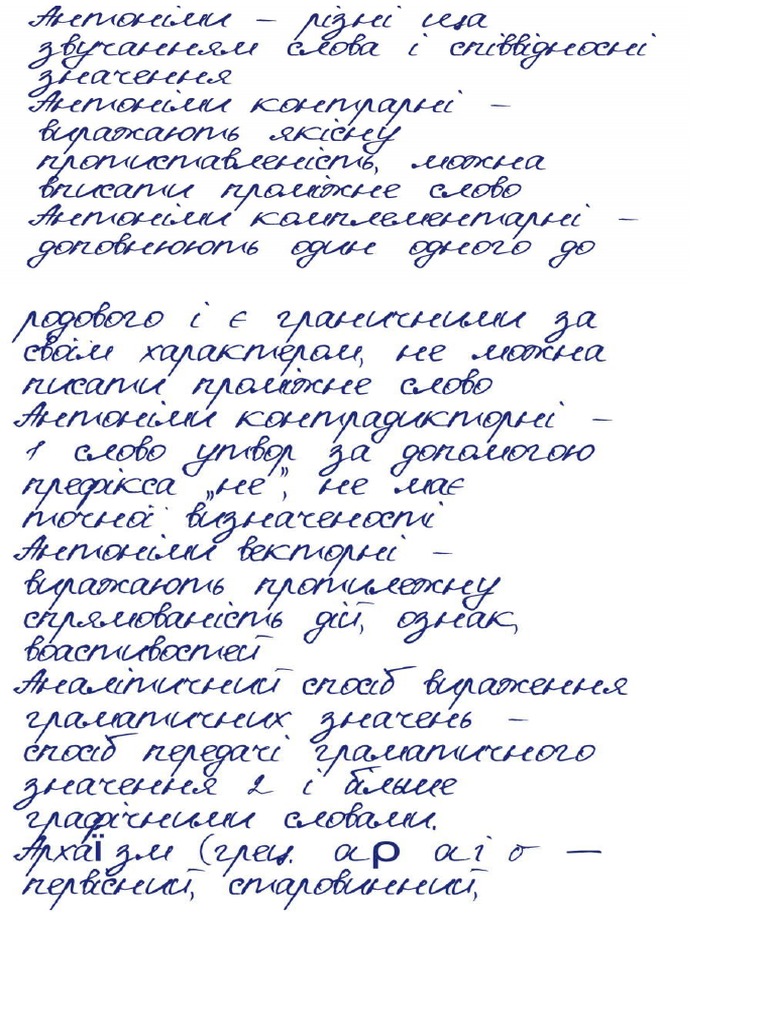 Антоніми – різні ща
звучанням слова і співвідносні
значення
Антоніми контрарні –
виражають якісну
протиставленість, можна
вписати проміжне слово
Антоніми комплементарні –
доповнюють один одного до
родового і є граничними за
своїм характером, не можна
писати проміжне слово
Антоніми контрадикторні –
1 слово утвор за допомогою
префікса „не”, не має
точної визначеності
Антоніми векторні –
виражають протилежну
спрямованість дій, ознак,
воастивостей
Аналітичний спосіб вираження
граматичних значень –
спосіб передачі граматичного
значення 2 і більше
графічними словами.
Архаїзм (грец. αρ αi σ —
первісний, старовинний,